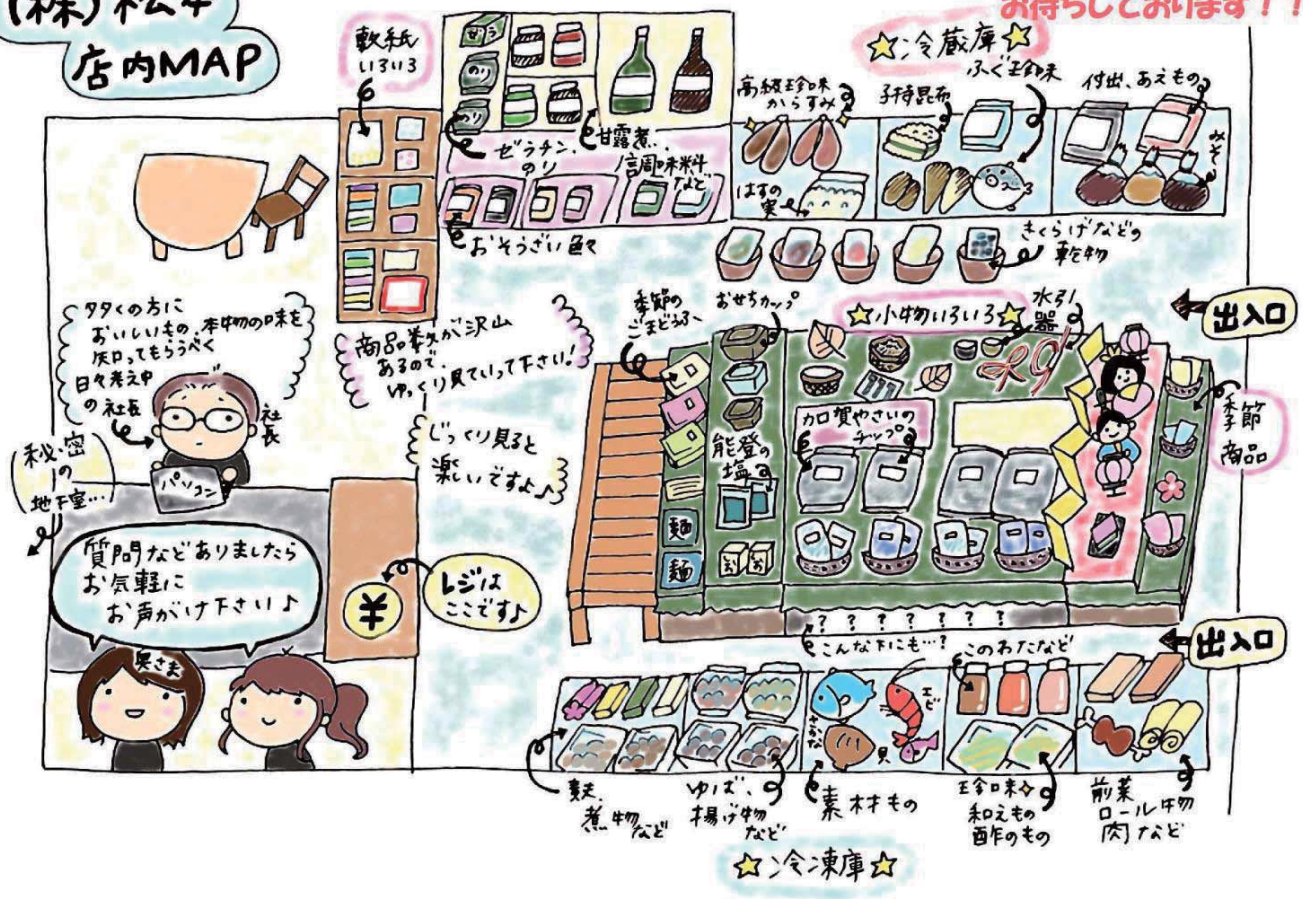 (株)松本
店内MAP
お待ちしております!!
敷紙
いろいろ
ゼラ
のり
のり
ゼラチン、
のり
甘露煮、
調味料
など
おそうざい色々
☆冷蔵庫☆
高級珍味
からすみ
はすの
実
子持昆布
ふぐ珍味
付出、あえもの
みそ
きくらげなどの
乾物
多くの方に
おいしいもの、本物の味を
知ってもらうべく
日々考え中
の社長
社長
パソコン
秘密
の
地下室…
商品数が沢山
あるので、
ゆっくり見ていって下さい!
じっくり見ると
楽しいですよ♪
質問などありましたら
お気軽に
お声がけ下さい♪
¥
レジは
ここです♪
奥さま
季節の
ごまどうふ
おせちカップ
☆小物いろいろ☆
水引
器
能登の
塩
加賀やさいの
チップ
麺
麺
お
お
季節
商品
出入口
出入口
? ? ? ? ? ? ?
こんな下にも…?
麩、
煮物
など
ゆば、
揚げ物
など
さかな
エビ
貝
素材もの
このわたなど
珍味
和えもの
酢のもの
前菜
ロール物
肉など
☆冷凍庫☆